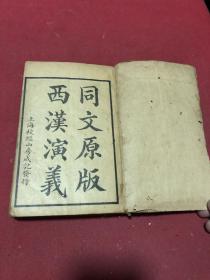 同文原版
西漢演義
上海校經山房成記發行